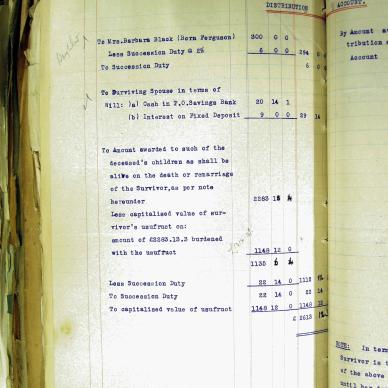 DISTRIBUTION
ACCOUNT.
To Mrs. Barbara Black (Born Ferguson) 300 0 0
Less Succession Duty @ 2% 6 0 0 294 0
To Succession Duty 6 0
To Surviving Spouse in terms of
Will: (a) Cash in P.O.Savings Bank 20 14 1
(b) Interest on Fixed Deposit 9 0 0 29 14
To Amount awarded to such of the
deceased's children as shall be
alive on the death or remarriage
of the Survivor, as per note
hereunder 2283 13
Less capitalised value of sur-
vivor's usufruct on:
amount of £2283.13.3 burdened
with the usufruct 1148 12 0
1135
Less Succession Duty 22 14 0 1112
To Succession Duty 22 14 0 22 14
To capitalised value of usufruct 1148 12 0 1148 12
£ 2613
By Amount
tribution
Account
NOTE: In term
Survivor is
of the above
until